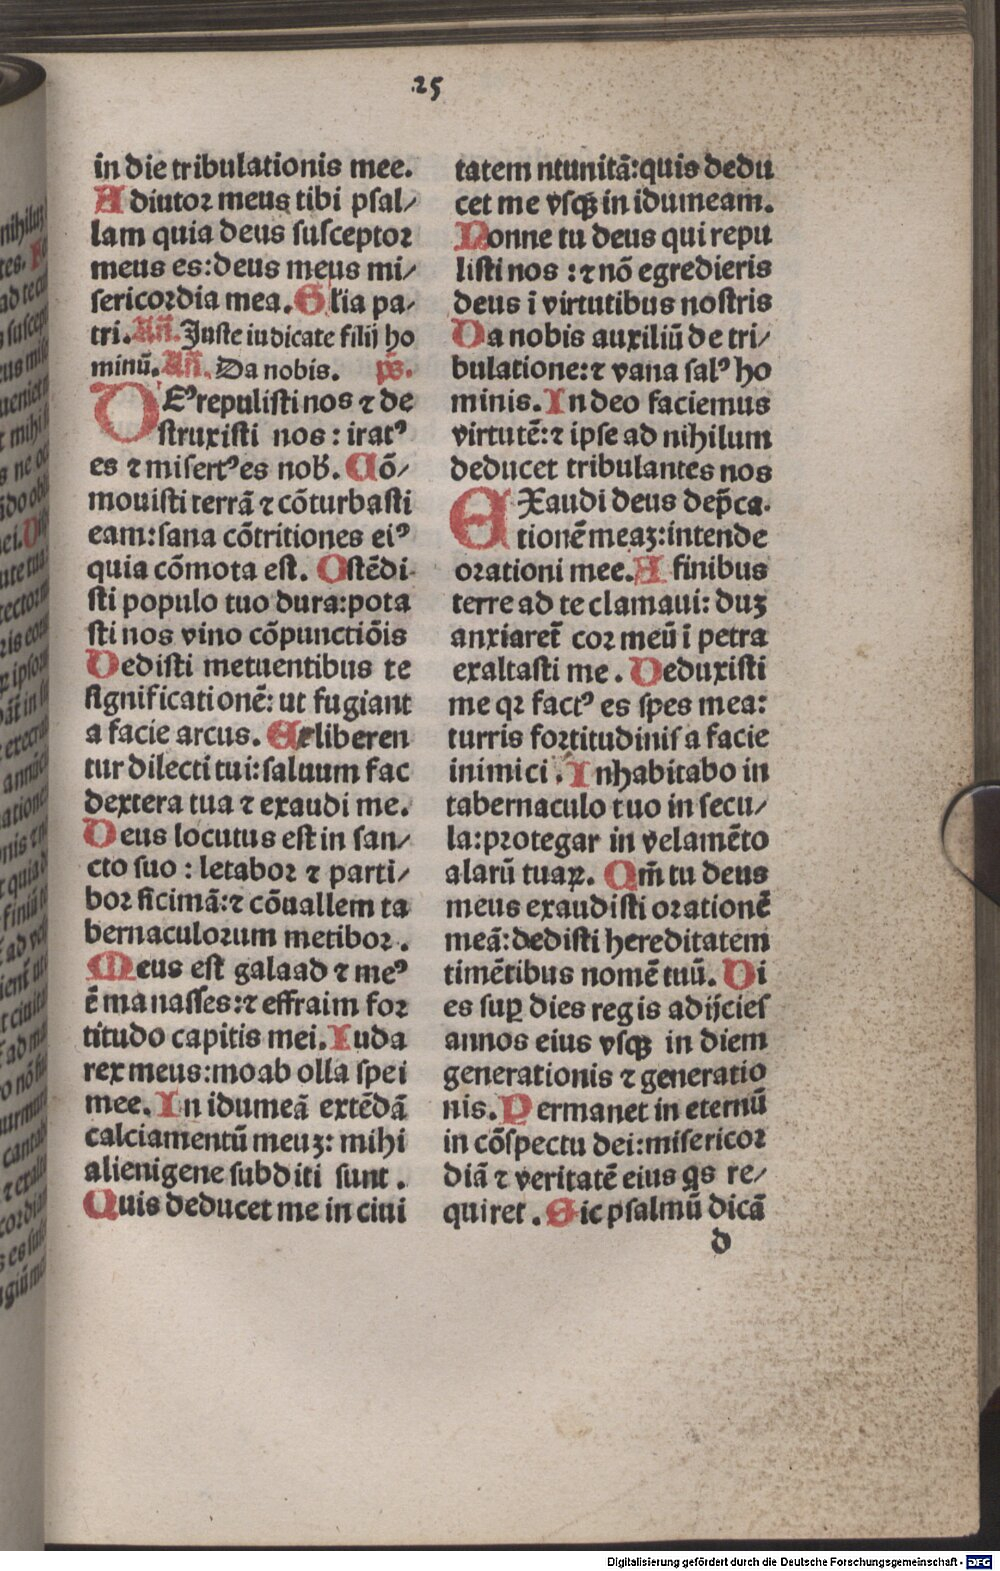 25
in die tribulationis mee.
Adiutor meus tibi psal/
lam quia deus susceptor
meus es:deus meus mi/
sericordia mea. Glia pa/
tri. Añ. Juste iudicate filij ho
minū. Añ. Da nobis. p̄s.
DEꝰ repulisti nos ⁊ de
struxisti nos: iratꝰ
es ⁊ misertꝰ es nob̄. Cō/
mouisti terrā ⁊ cōturbasti
eam:sana cōtritiones eiꝰ
quia cōmota est. Ostēdi
sti populo tuo dura:pota
sti nos vino cōpunctiōis
Dedisti metuentibus te
significationē: ut fugiant
a facie arcus. Et liberen
tur dilecti tui:saluum fac
dextera tua ⁊ exaudi me.
Deus locutus est in san/
cto suo: letabor ⁊ parti/
bor sicimā:⁊ cōuallem ta
bernaculorum metibor.
Meus est galaad ⁊ meꝰ
ē manasses:⁊ effraim for
titudo capitis mei. Iuda
rex meus:moab olla spei
mee. In idumeā extēdā
calciamentū meuꝫ: mihi
alienigene subditi sunt.
Quis deducet me in ciui
tatem ntunitā:quis dedu
cet me vsqꝫ in idumeam.
Nonne tu deus qui repu
listi nos:⁊ nō egredieris
deus ī virtutibus nostris
Da nobis auxiliū de tri/
bulatione:⁊ vana salꝰ ho
minis. In deo faciemus
virtutē:⁊ ipse ad nihilum
deducet tribulantes nos
EXaudi deus dep̄ca
tionē meaꝫ:intende
orationi mee. A finibus
terre ad te clamaui: duꝫ
anxiaret̄ cor meū ī petra
exaltasti me. Deduxisti
me qꝛ factꝰ es spes mea:
turris fortitudinis a facie
inimici. Inhabitabo in
tabernaculo tuo in secu/
la:protegar in velamēto
alarū tuaꝝ. Qm̄ tu deus
meus exaudisti orationē
meā:dedisti hereditatem
timētibus nomē tuū. Di
es suꝑ dies regis adijcies
annos eius vsqꝫ in diem
generationis ⁊ generatio
nis. Permanet in eternū
in cōspectu dei:misericor
diā ⁊ veritatē eius q̄s re/
quiret. Sic psalmū dicā
d
Digitalisierung gefördert durch die Deutsche Forschungsgemeinschaft - DFG